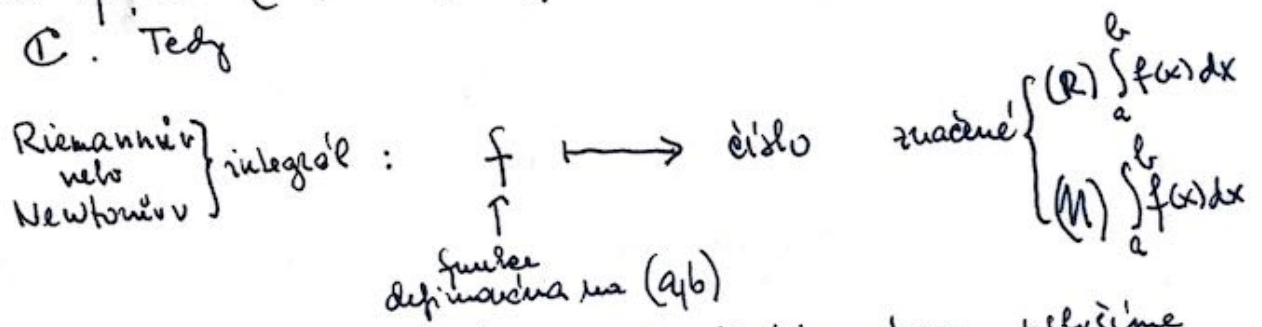 C. Tedy
Riemannův nebo Newtonův } integrál : f ⟼ číslo značené { (R) ∫_a^b f(x) dx
(N) ∫_a^b f(x) dx
↑
funkce
definovaná na (a,b)